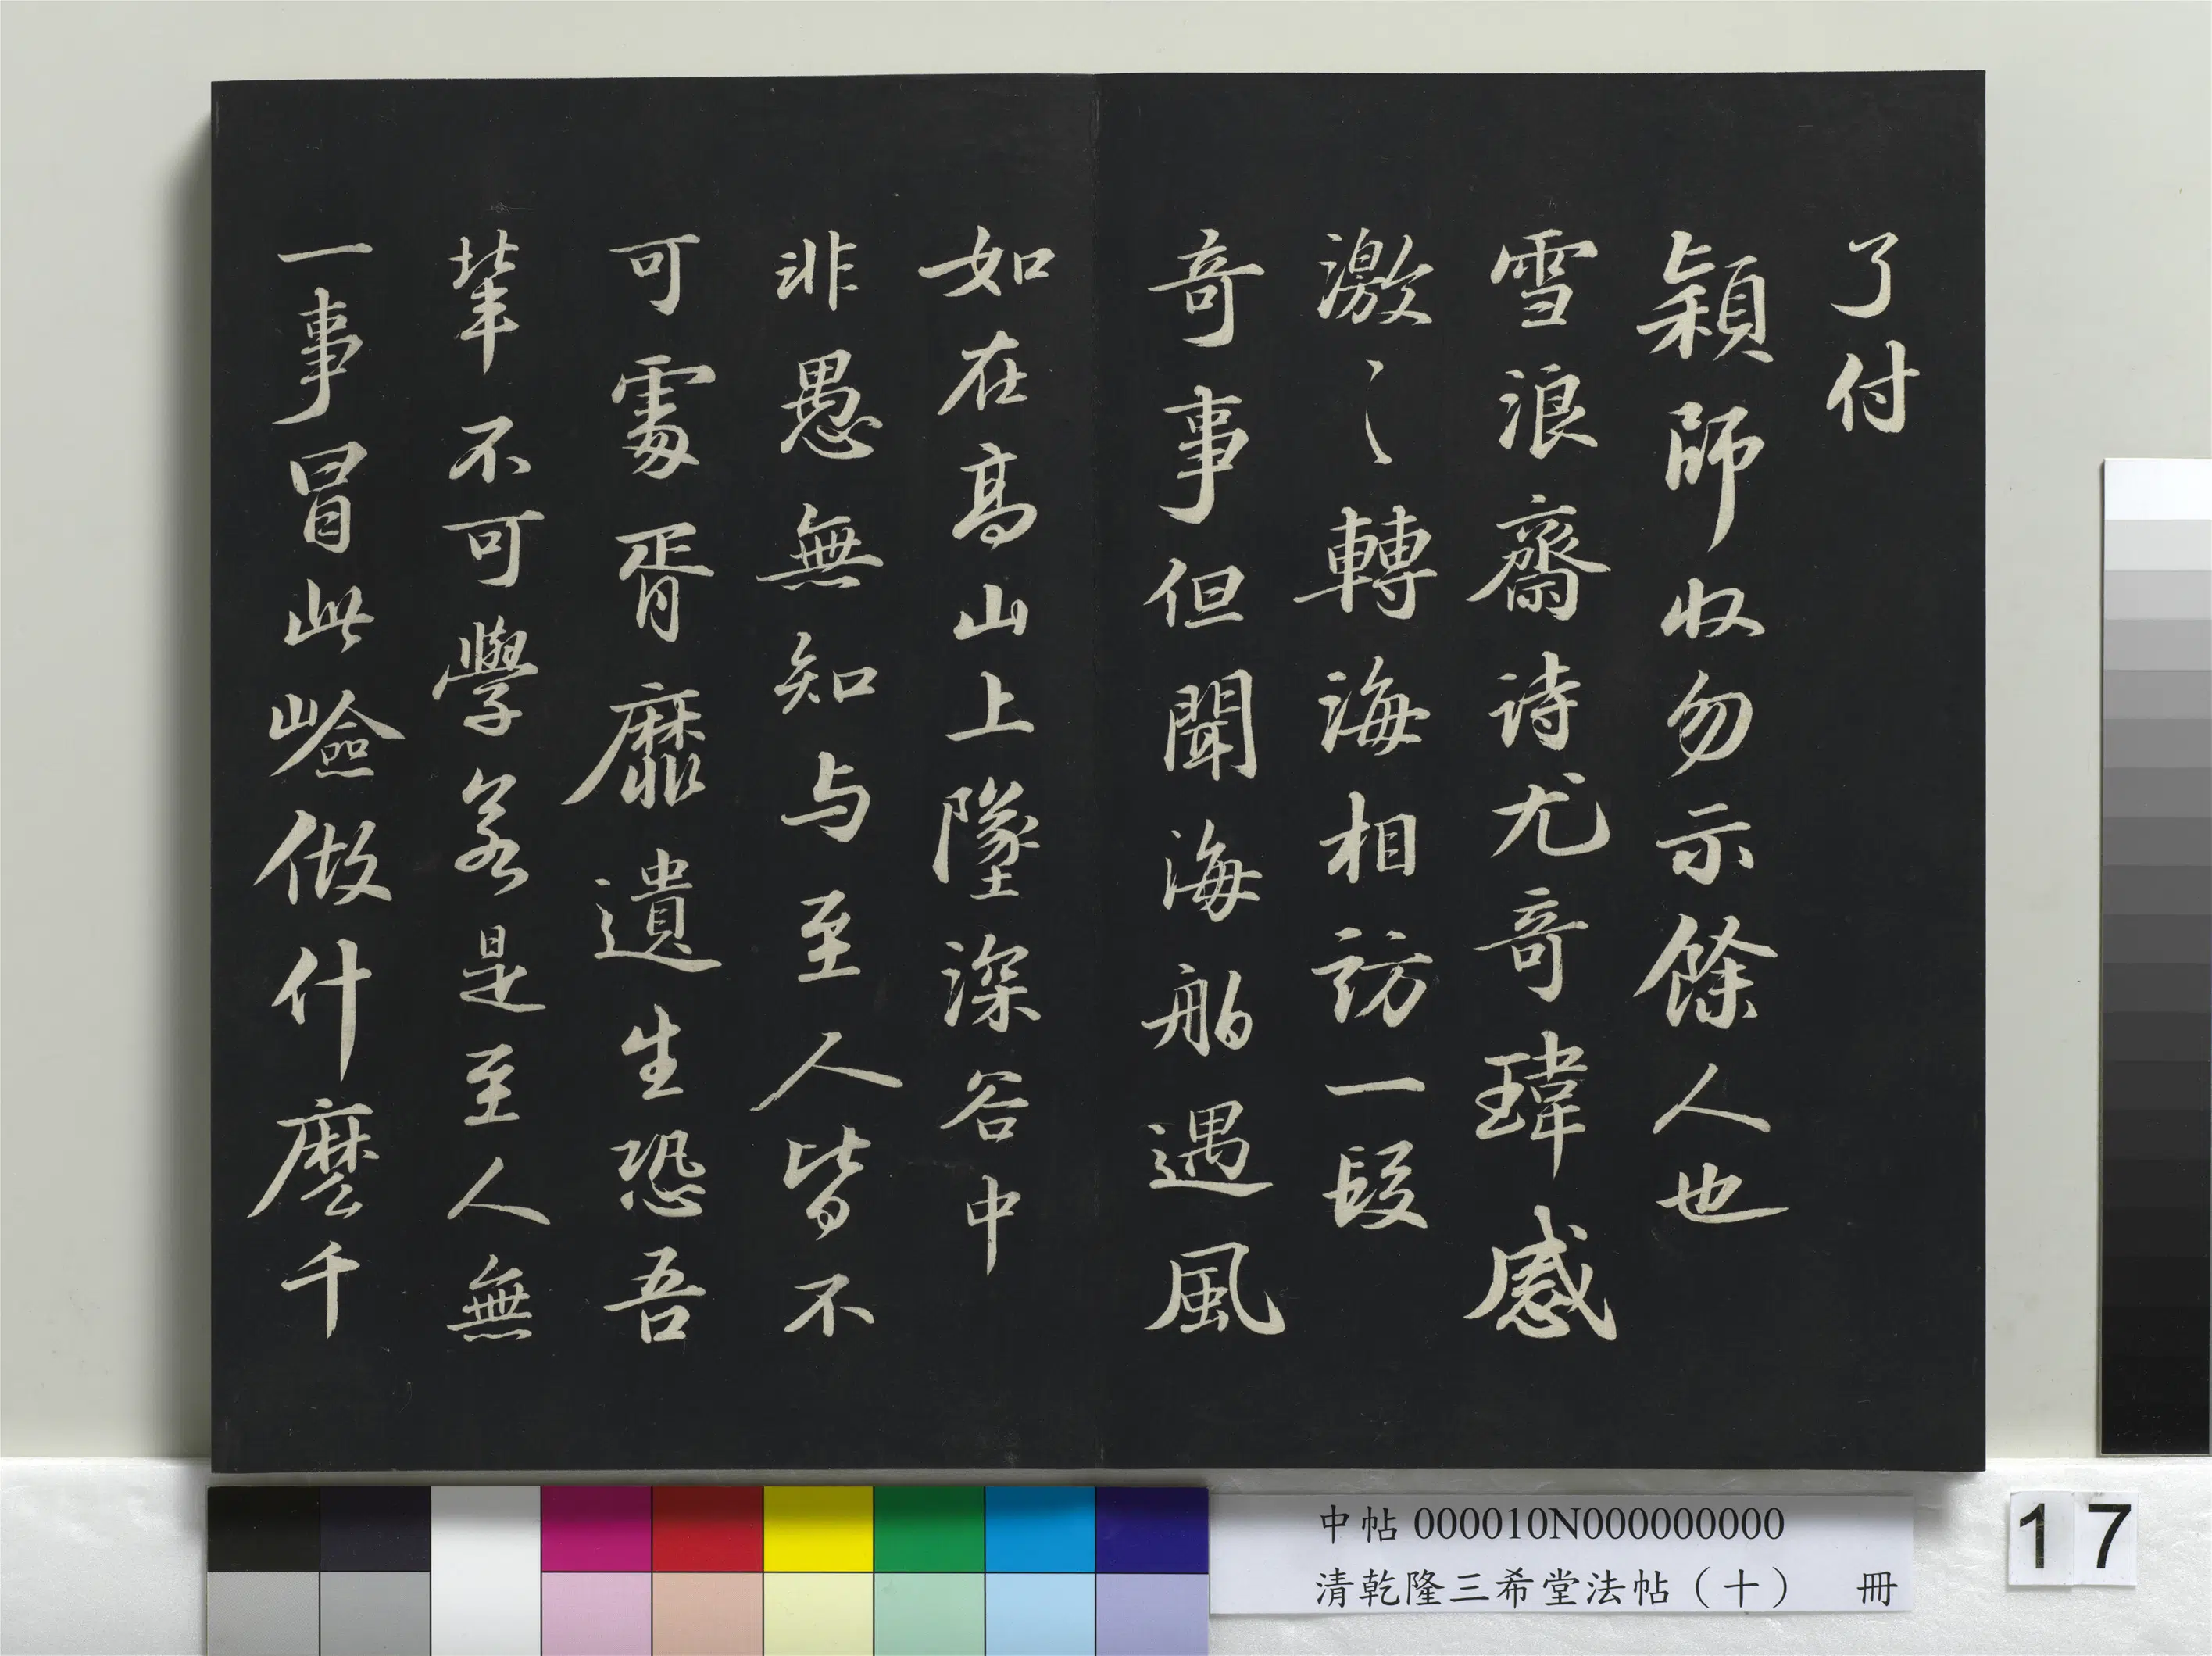 了付
穎師收勿示餘人也
雪浪齋诗尤奇瑋感
激〻轉海相訪一段
奇事但聞海舶遇風
如在高山上墜深谷中
非愚無知与至人皆不
可處胥靡遺生恐吾
輩不可學若是至人無
一事冒此嶮做什麽千
中帖 000010N000000000
清乾隆三希堂法帖（十） 冊
17